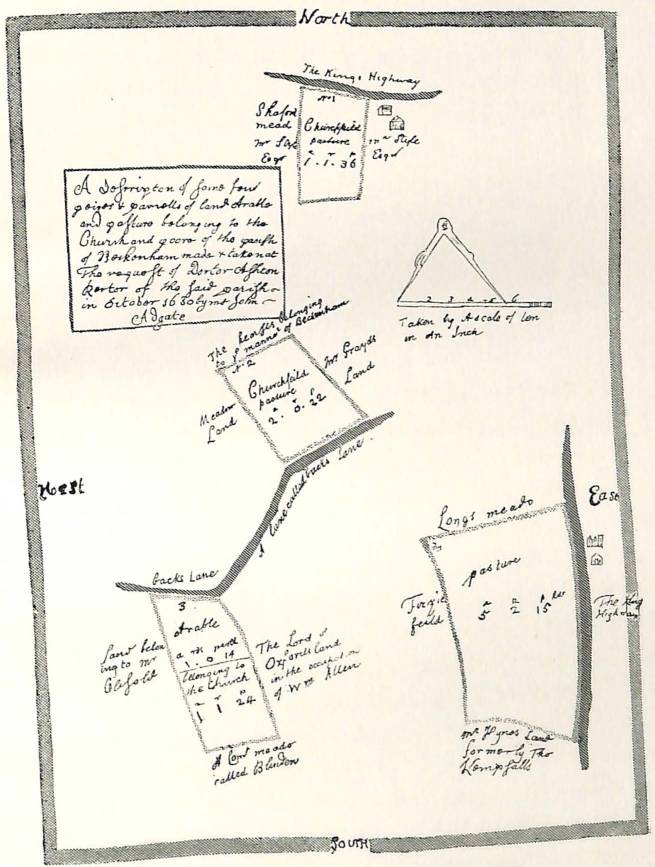 North
The Kings Highway
No 1
Shaford
mead
Mr Sty
Esqr
Churchfeild
pasture
a r p
1 . 1 . 36
Mr Stile
Esqr
A Description of some four
peices & parcells of land Arable
and pasture belonging to the
Church and poore of the parish
of Beckenham made & taken at
The request of Doctor Asheton
Rector of the said parish
in October 1680 by mr John
Adgate
2 3 4 5 6
Taken by A scale of ten
in An Inch
The belonging
to ye mannor of Beckenham
N. 2
Churchfeild
pasture
a r p
2 . 0 . 22
Meadow
Land
Mr Grayes
Land
A lane called backs Lane
West
East
Longs meado
pasture
5 2 15
feild
The King
Highway
Mr Hynes Land
formerly Tho
Kempsalls
backs Lane
3
Arable
1 . 0 14
belonging to
the Church
1 1 24
Land belon
ing to Mr
The Lord of
Oxfords land
in the
of Wm Allen
A meado
called Blindon
South